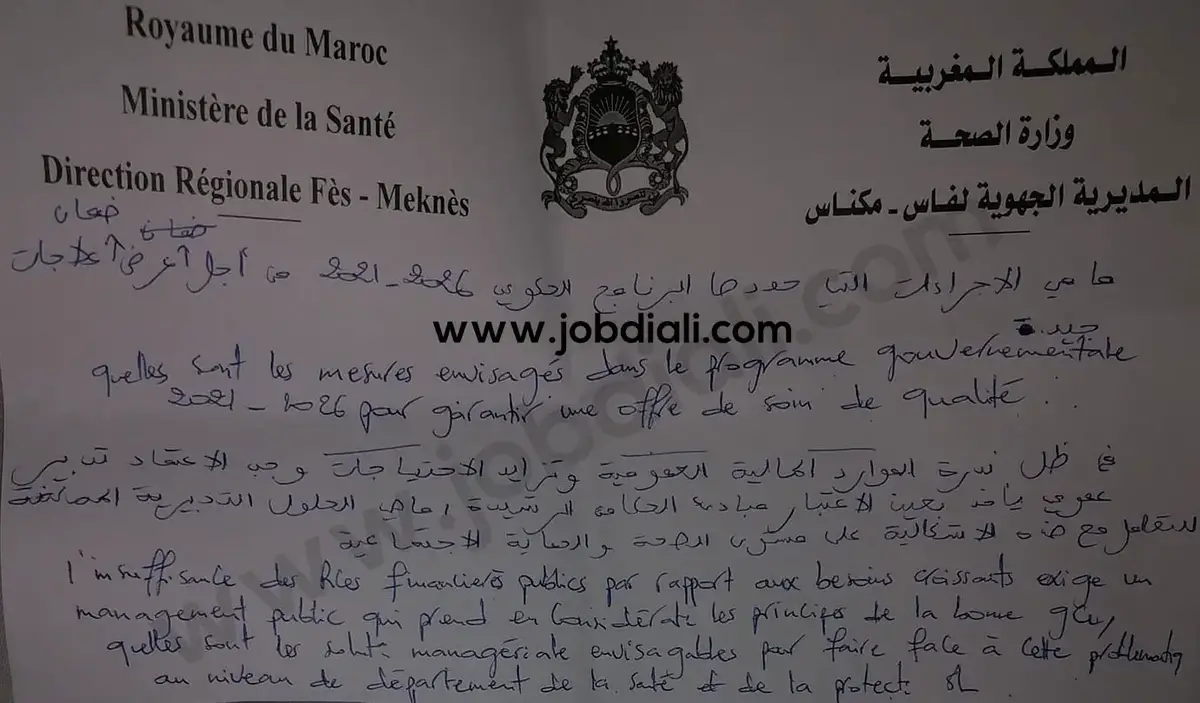 Royaume du Maroc
Ministère de la Santé
Direction Régionale Fès - Meknès
المملكة المغربية
وزارة الصحة
المديرية الجهوية لفاس - مكناس
ضمان
ضمان
ما هي الاجراءات التي حددها البرنامج الحكومي 2026-2021 من أجل عرض علاجات
جيدة
www.jobdiali.com
quelles sont les mesures envisagés dans le programme gouvernementale
2021-2026 pour garantir une offre de soin de qualité.
في ظل ندرة الموارد المالية العمومية وتزايد الاحتياجات وجب الاعتماد تدبير
عمومي يأخذ بعين الاعتبار مبادئ الحكامة الرشيدة، ماهي الحلول التدبيرية
للتعامل مع هذه الاشكالية على مستوى الصحة والحماية الاجتماعية
l'insuffisance des Rces financières publics par rapport aux besoins croissants exige un
management public qui prend en considérat les principes de la bonne gce,
quelles sont les solut managériale envisagables pour faire face à cette problématiq
au niveau de département de la saté et de la protect sL
www.jobdiali.com